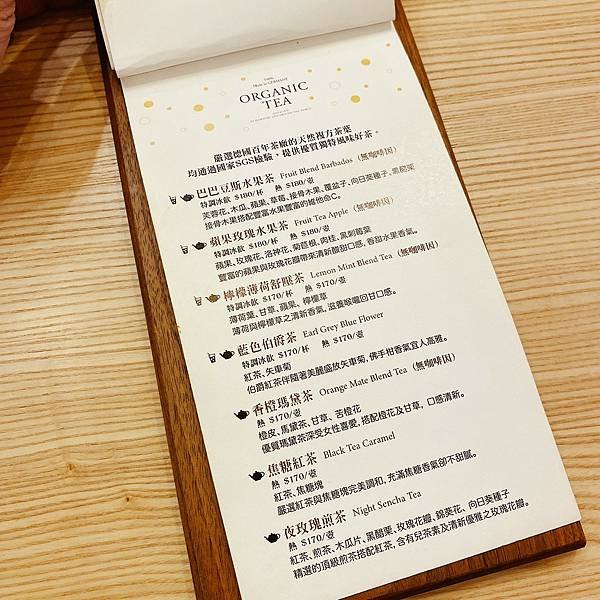 Made in GERMANY
ORGANIC
TEA
嚴選德國百年茶廠的天然複方茶葉
均通過國家SGS檢驗、提供優質獨特風味好茶。
巴巴豆斯水果茶 Fruit Blend Barbados (無咖啡因)
特調冰飲 $180/杯 熱 $180/壺
芙蓉花、木瓜、蘋果、草莓、接骨木果、覆盆子、向日葵種子、黑醋栗
接骨木果搭配豐富水果豐富的維他命C。
蘋果玫瑰水果茶 Fruit Tea Apple (無咖啡因)
特調冰飲 $180/杯 熱 $180/壺
蘋果、玫瑰花、洛神花、菊苣根、肉桂、黑刺莓葉
豐富的蘋果與玫瑰花瓣帶來清新酸甜口感，香甜水果香氣。
檸檬薄荷舒壓茶 Lemon Mint Blend Tea (無咖啡因)
特調冰飲 $170/杯 熱 $170/壺
薄荷葉、甘草、蘋果、檸檬草
薄荷與檸檬草之清新香氣，滋養喉嚨回甘口感。
藍色伯爵茶 Earl Grey Blue Flower
特調冰飲 $170/杯 熱 $170/壺
紅茶、矢車菊
伯爵紅茶伴隨著美麗盛放矢車菊，佛手柑香氣宜人高雅。
香橙瑪黛茶 Orange Mate Blend Tea (無咖啡因)
熱 $170/壺
橙皮、馬黛茶、甘草、苦橙花
優質瑪黛茶深受女性喜愛，搭配橙花及甘草，口感清新。
焦糖紅茶 Black Tea Caramel
熱 $170/壺
紅茶、焦糖塊
嚴選紅茶與焦糖塊完美調和，充滿焦糖香氣卻不甜膩。
夜玫瑰煎茶 Night Sencha Tea
熱 $170/壺
紅茶、煎茶、木瓜片、黑醋栗、玫瑰花瓣、錦葵花、向日葵種子
精選的頂級煎茶搭配紅茶，含有兒茶素及清新優雅之玫瑰花瓣。